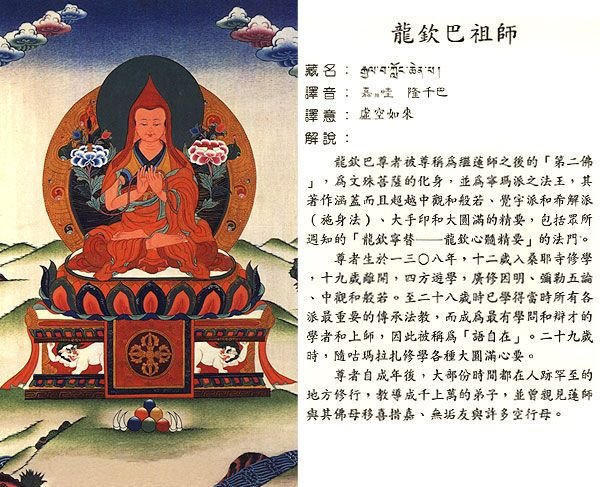 龍欽巴祖師
藏名：རྒྱལ་བ་ཀློང་ཆེན་པ།
譯音：嘉哇 隆千巴
譯意：虛空如來
解說：
龍欽巴尊者被尊稱為繼蓮師之後的「第二佛
」，為文殊菩薩的化身，並為寧瑪派之法王，其
著作涵蓋而且超越中觀和般若、覺宇派和希解派
（施身法）、大手印和大圓滿的精要，包括眾所
週知的「龍欽寧替——龍欽心髓精要」的法門。
尊者生於一三〇八年，十二歲入桑耶寺修學
，十九歲離開，四方遊學，廣修因明、彌勒五論
、中觀和般若。至二十八歲時已學得當時所有各
派最重要的傳承法教，而成為最有學問和辯才的
學者和上師，因此被稱為「語自在」。二十九歲
時，隨咕瑪拉扎修學各種大圓滿心要。
尊者自成年後，大部份時間都在人跡罕至的
地方修行，教導成千上萬的弟子，並曾親見蓮師
與其佛母移喜措嘉、無垢友與許多空行母。